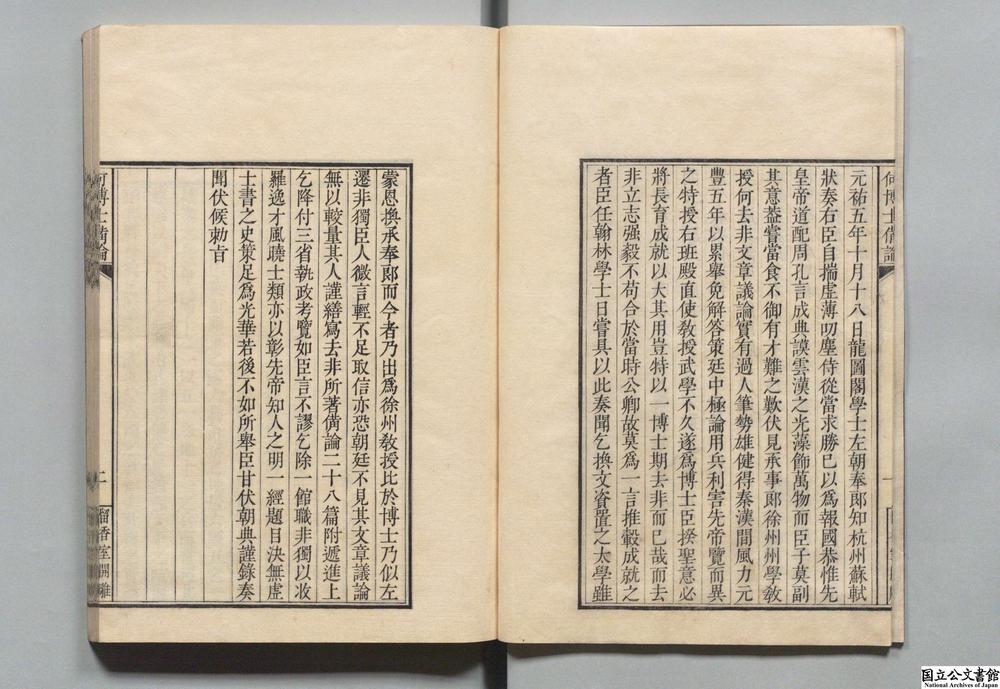 元祐五年十月十八日龍圖閣學士左朝奉郎知杭州蘇軾
狀奏右臣自揣虛薄叨塵侍從當求勝已以爲報國恭惟先
皇帝道配周孔言成典謨雲漢之光藻飾萬物而臣子莫副
其意葢嘗當食不御有才難之歎伏見承事郎徐州州學敎
授何去非文章議論實有過人筆勢雄健得秦漢間風力元
豐五年以累舉免解答策廷中極論用兵利害先帝覽而異
之特授右班殿直使敎授武學不久遂爲博士臣揆聖意必
將長育成就以大其用豈特以一博士期去非而已哉而去
非立志强毅不苟合於當時公卿故莫爲一言推轂成就之
者臣任翰林學士日嘗具以此奏聞乞換文資置之太學雖
何博士備論
一
蒙恩換承奉郎而今者乃出爲徐州敎授比於博士乃似左
遷非獨臣人微言輕不足取信亦恐朝廷不見其文章議論
無以較量其人謹繕寫去非所著備論二十八篇附遞進上
乞降付三省執政考覽如臣言不謬乞除一館職非獨以收
羅逸才風曉士類亦以彰先帝知人之明一經題目決無虛
士書之史策足爲光華若後不如所舉臣甘伏朝典謹錄奏
聞伏候勑旨
何博士備論
二
畱香室開雕
国立公文書館
National Archives of Japan